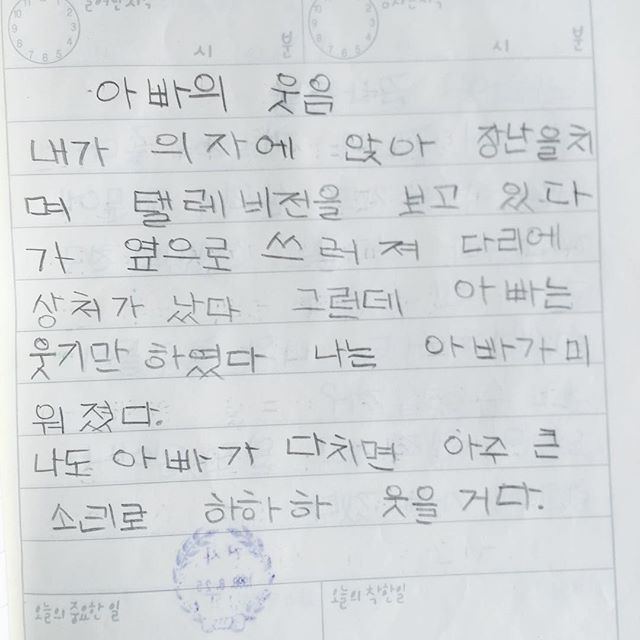 시 분 시 분
아빠의 웃음
내가 의자에 앉아 장난을치
며 텔레비전을 보고 있다
가 옆으로 쓰러져 다리에
상처가 났다 그런데 아빠는
웃기만 하였다 나는 아빠가미
워졌다.
나도 아빠가 다치면 아주 큰
소리로 하하하 웃을 거다.
오늘의 중요한 일 오늘의 착한일